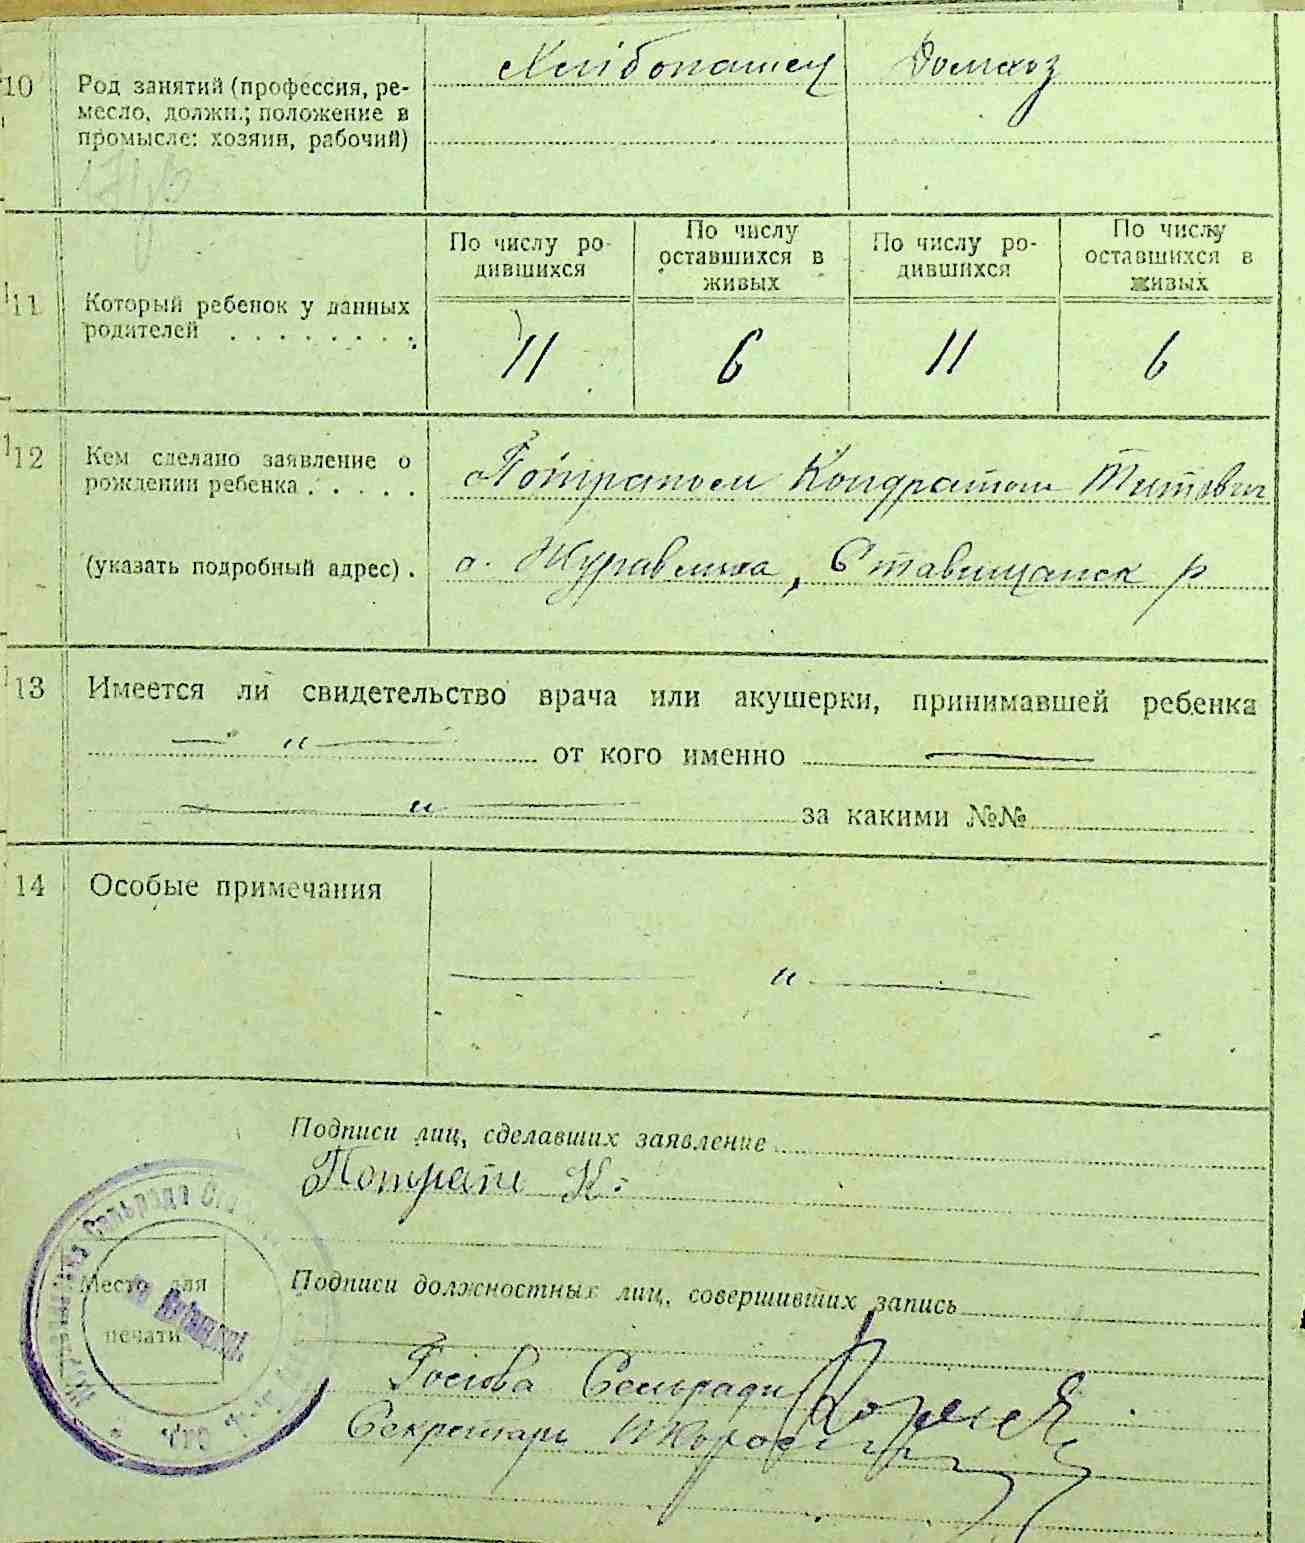 10 Род занятий (профессия, ре-
месло, должн.; положение в
промысле: хозяин, рабочий)
Хлібопашец Домхоз
По числу ро-
дившихся
По числу
оставшихся в
живых
По числу ро-
дившихся
По числу
оставшихся в
живых
11 Который ребенок у данных
родителей . . . . . . . .
11 6 11 6
12 Кем сделано заявление о
рождении ребенка . . . . .
Кондратом Титович
(указать подробный адрес) .
с. Журавлиха, Ставищанск р
13 Имеется ли свидетельство врача или акушерки, принимавшей ребенка
— " — от кого именно —
— " — за какими №№
14 Особые примечания
— " —
Подписи лиц, сделавших заявление
К.
Место для
печати
Сельрада
Подписи должностных лиц, совершивших запись
Голова Сельради
Секретарь